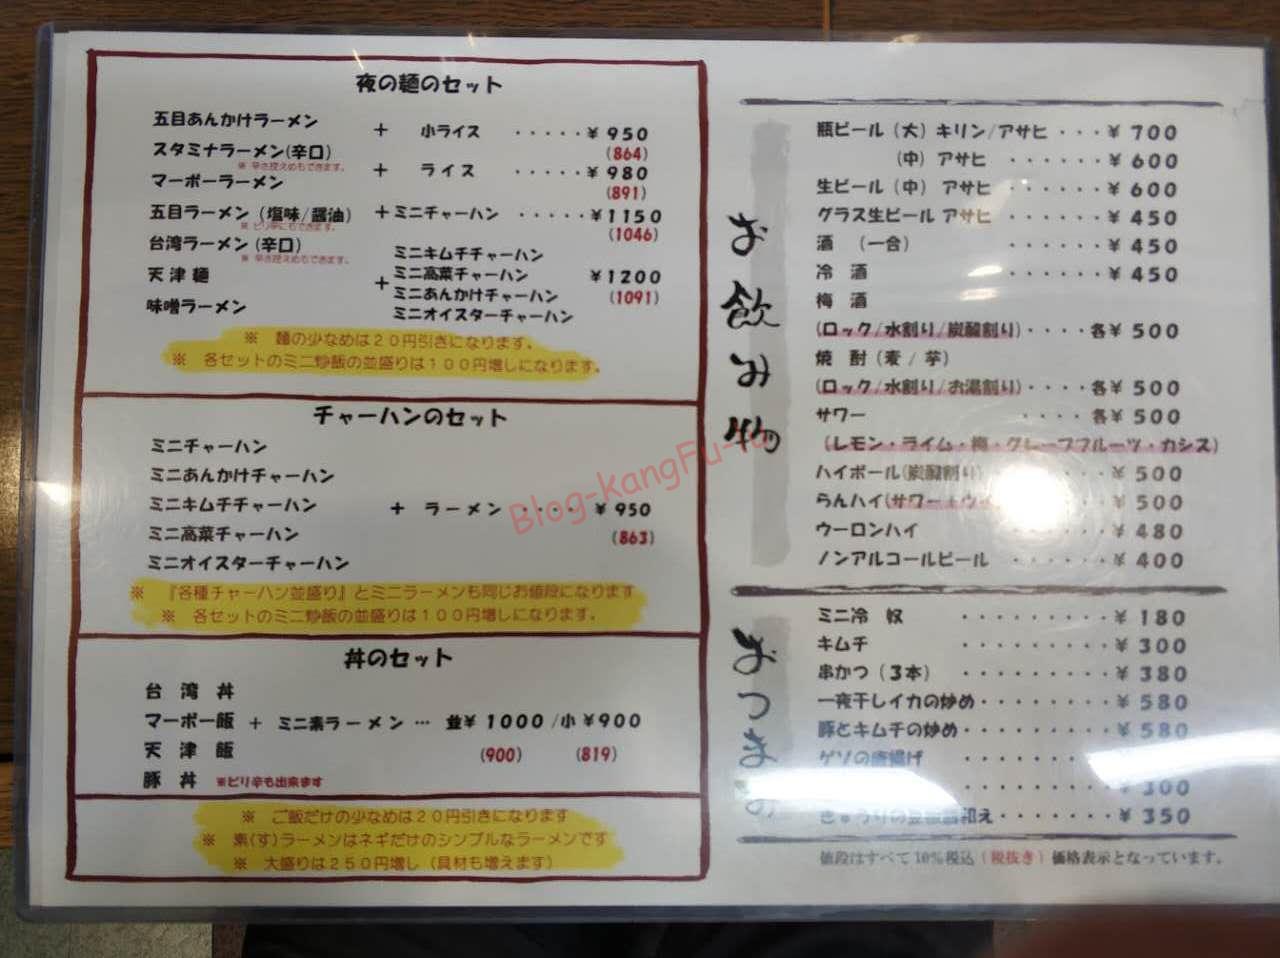 夜の麺のセット
五目あんかけラーメン
スタミナラーメン(辛口)
※ 辛さ控えめもできます。
マーボーラーメン
五目ラーメン (塩味/醤油)
※ ピリ辛にもできます。
台湾ラーメン (辛口)
※ 辛さ控えめもできます。
天津麺
味噌ラーメン
+ 小ライス ・・・・・¥950
(864)
+ ライス ・・・・・¥980
(891)
+ミニチャーハン ・・・・・¥1150
(1046)
ミニキムチチャーハン
ミニ高菜チャーハン ¥1200
+ミニあんかけチャーハン (1091)
ミニオイスターチャーハン
※ 麺の少なめは20円引きになります。
※ 各セットのミニ炒飯の並盛りは100円増しになります。
チャーハンのセット
ミニチャーハン
ミニあんかけチャーハン
ミニキムチチャーハン + ラーメン ・・・・ ¥950
ミニ高菜チャーハン (863)
ミニオイスターチャーハン
※ 『各種チャーハン並盛り』とミニラーメンも同じお値段になります
※ 各セットのミニ炒飯の並盛りは100円増しになります。
丼のセット
台湾丼
マーボー飯 + ミニ素ラーメン … 並¥1000 /小¥900
天津飯 (900) (819)
豚丼 ※ピリ辛も出来ます
※ ご飯だけの少なめは20円引きになります
※ 素(す)ラーメンはネギだけのシンプルなラーメンです
※ 大盛りは250円増し (具材も増えます)
お飲み物
瓶ビール (大) キリン/アサヒ ・・・¥700
(中) アサヒ ・・・・・・¥600
生ビール (中) アサヒ ・・・・・・¥600
グラス生ビール アサヒ ・・・・・・¥450
酒 (一合) ・・・・・・¥450
冷酒 ・・・・・・¥450
梅酒
(ロック/水割り/炭酸割り)・・・・各¥500
焼酎 (麦/芋)
(ロック/水割り/お湯割り)・・・・各¥500
サワー ・・・・各¥500
(レモン・ライム・梅・グレープフルーツ・カシス)
ハイボール(炭酸割り) ¥500
らんハイ(サワー ¥500
ウーロンハイ ¥480
ノンアルコールビール ・・・・・・¥400
おつまみ
ミニ冷奴 ・・・・・・・・・¥180
キムチ ・・・・・・・・・¥300
串かつ (3本) ・・・・・・・・・¥380
一夜干しイカの炒め・・・・・・・・¥580
豚とキムチの炒め・・・・・・・・・¥580
ゲソの唐揚げ
・・・・・・・・・¥300
和え・・・・・・・¥350
値段はすべて10%税込 (税抜き) 価格表示となっています。